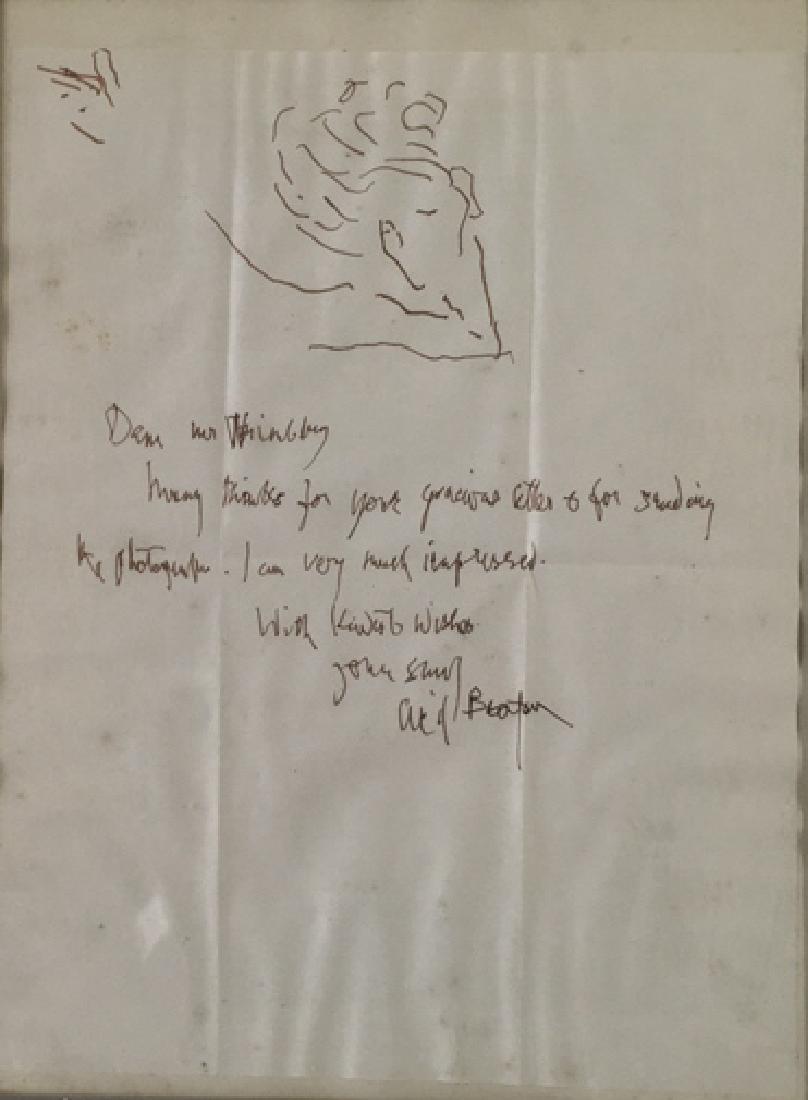 Dear Mr
Many thanks for your gracious letter & for sending
the photographs. I am very much impressed.
With kindest wishes
yours sincerely
Cecil Beaton